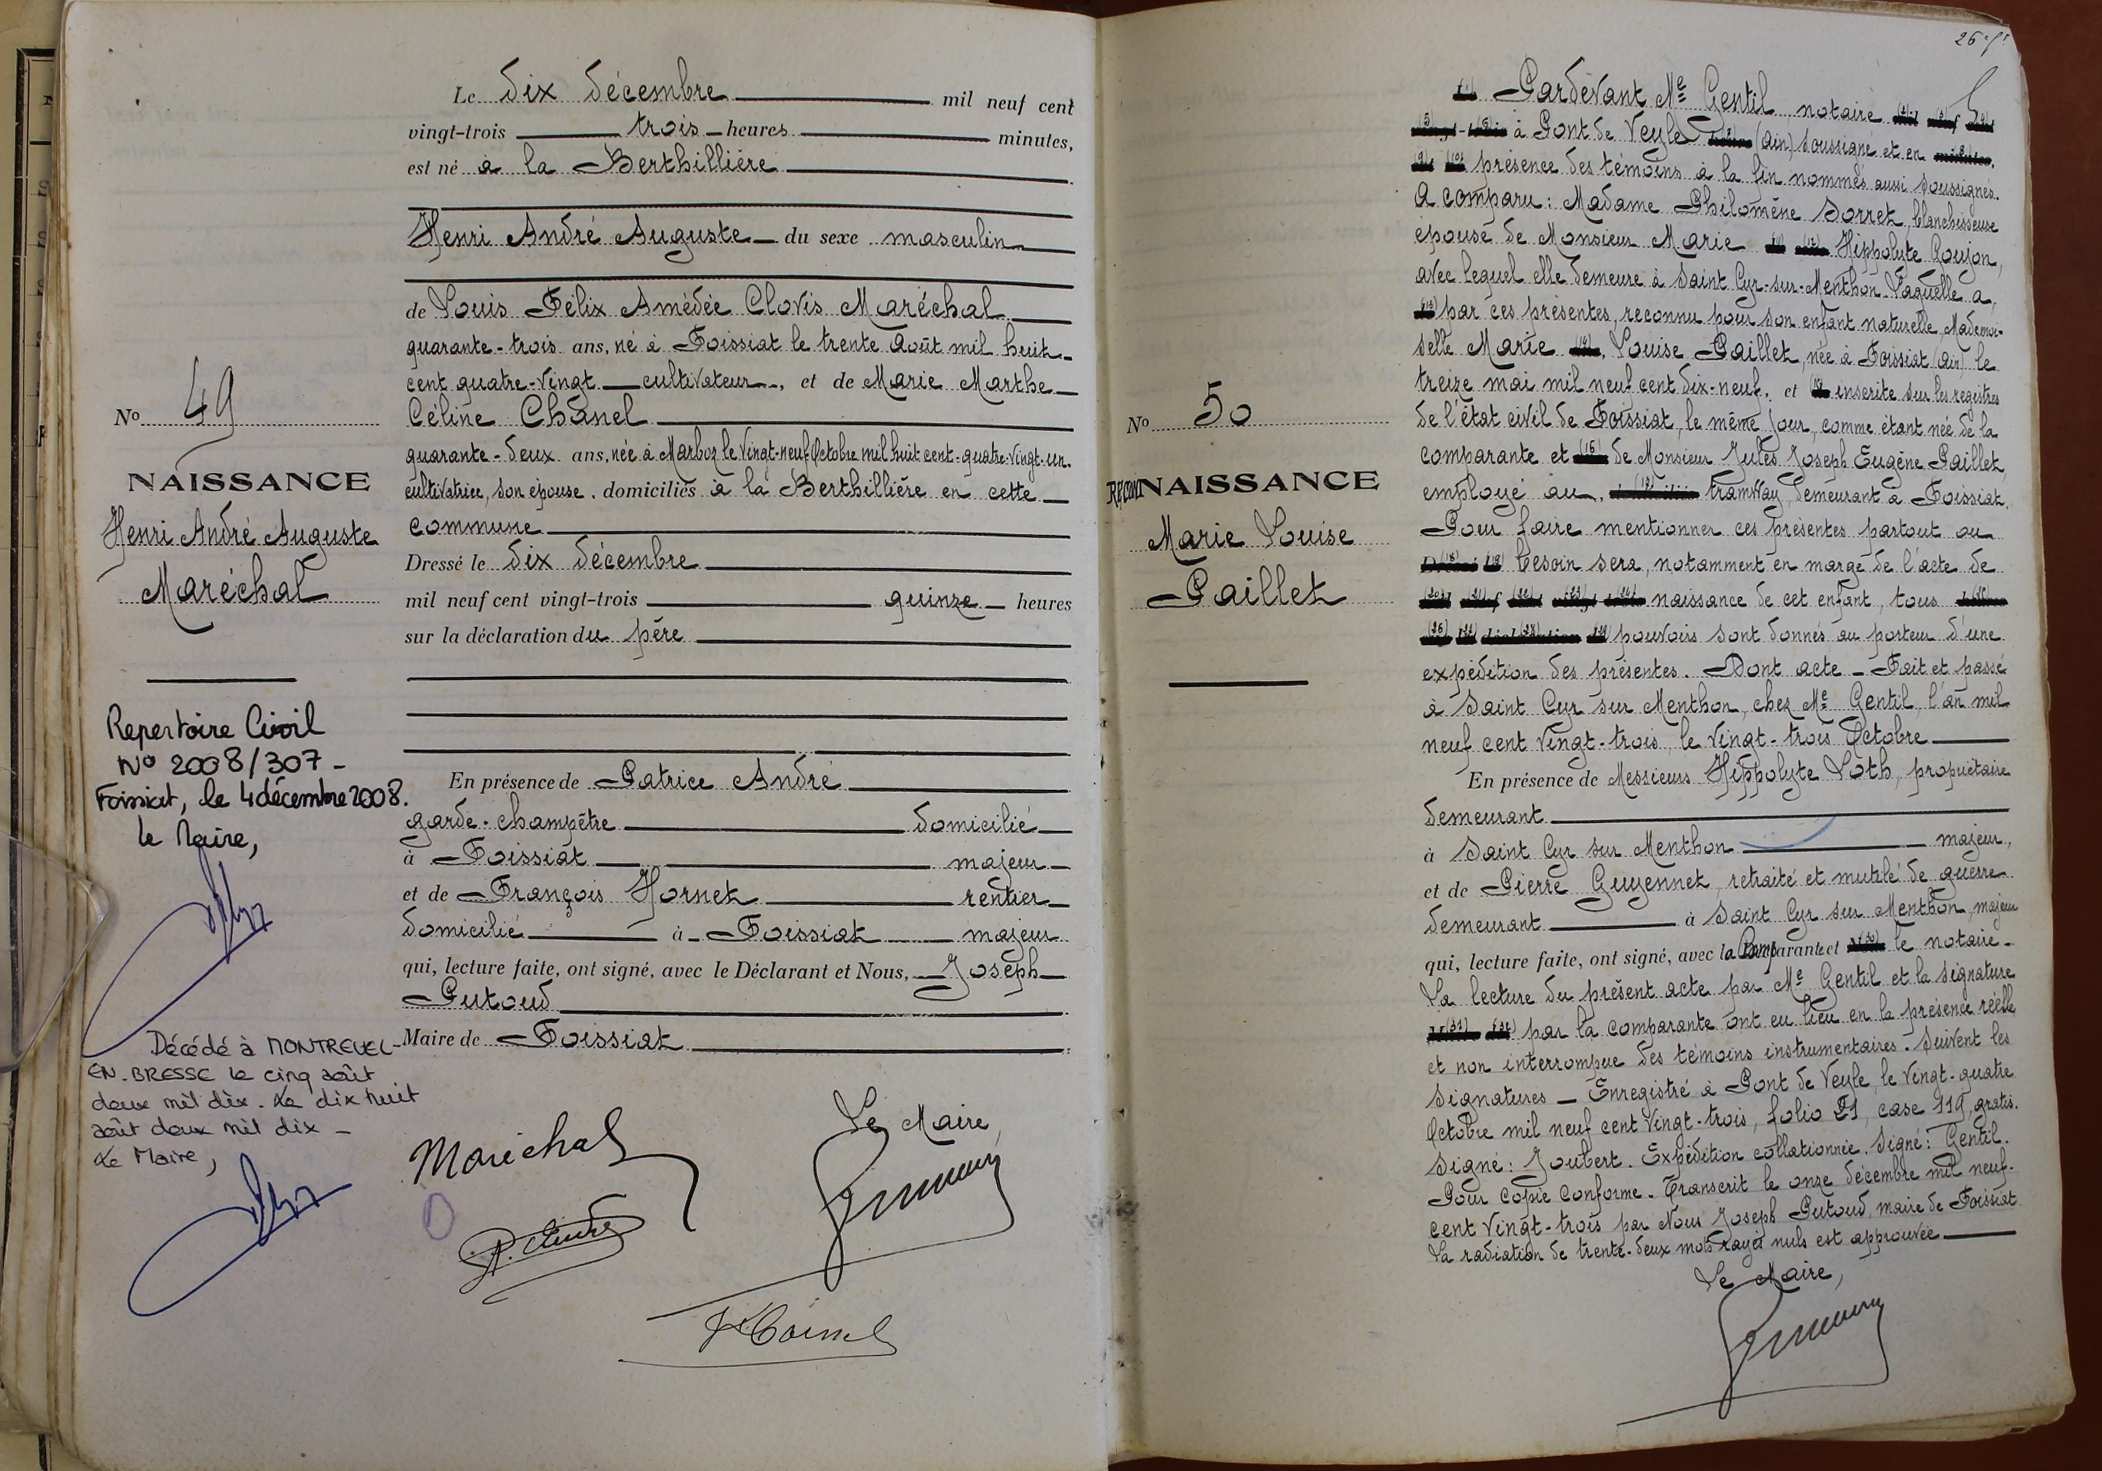 Le dix décembre mil neuf cent
vingt-trois trois heures minutes,
est né à la Berthillière
Henri André Auguste du sexe masculin
de Louis Félix Amédée Clovis Maréchal
quarante-trois ans, né à Foissiat le trente Août mil huit
cent quatre-vingt cultivateur, et de Marie Marthe
Céline Chanel
quarante-deux ans, née à Marboz le vingt-neuf Octobre mil huit cent-quatre-vingt-un.
cultivatrice, son épouse. domiciliés à la Berthillière en cette
commune
Dressé le dix décembre
mil neuf cent vingt-trois quinze heures
sur la déclaration du père
En présence de Patrice André
garde-champêtre domicilié
à Foissiat majeur
et de François Hornet rentier
domicilié à Foissiat majeur
qui, lecture faite, ont signé, avec le Déclarant et Nous, Joseph
Putoud
Maire de Foissiat
Le Maire,
Maréchal
P. André
No 49
NAISSANCE
Henri André Auguste
Maréchal
Repertoire Civil
No 2008/307-
Foissiat, le 4 décembre 2008.
le Maire,
Décédé à MONTREVEL-
EN-BRESSE le cinq août
deux mil dix. Le dix huit
août deux mil dix -
Le Maire,
26
Pardevant Me Gentil notaire
à Pont de Veyle (Ain) soussigné et en
présence des témoins à la fin nommés aussi soussignés.
A comparu: Madame Philomène Sorret, blanchisseuse
épouse de Monsieur Marie Hippolyte Goujon,
avec lequel elle demeure à Saint Cyr-sur-Menthon. Laquelle a,
par ces présentes, reconnu pour son enfant naturelle, Mademoi-
selle Marie Louise Paillet, née à Foissiat (Ain) le
treize mai mil neuf cent dix-neuf, et inscrite sur les registres
de l'état civil de Foissiat, le même jour, comme étant née de la
comparante et de Monsieur Jules Joseph Eugène Paillet,
employé au tramway, demeurant à Foissiat.
Pour faire mentionner ces présentes partout ou
besoin sera, notamment en marge de l'acte de
naissance de cet enfant, tous
pouvoirs sont donnés au porteur d'une
expédition des présentes. Dont acte - Fait et passé
à Saint Cyr sur Menthon, chez Me Gentil, l'an mil
neuf cent vingt-trois, le vingt-trois Octobre
En présence de Messieurs Hippolyte Loth, propriétaire
demeurant
à Saint Cyr sur Menthon majeur,
et de Pierre Guyennet, retraité et mutilé de guerre
demeurant à Saint Cyr sur Menthon, majeur
qui, lecture faite, ont signé, avec la Comparante et le notaire.
La lecture du présent acte par Me Gentil et la signature
par la comparante ont eu lieu en la présence réelle
et non interrompue des témoins instrumentaires. Suivent les
signatures - Enregistré à Pont de Veyle, le vingt-quatre
Octobre mil neuf cent vingt-trois, folio 21, case 119, gratis.
Signé: Joubert. Expédition collationnée. Signé: Gentil.
Pour copie conforme. Transcrit le onze décembre mil neuf-
cent vingt-trois par Nous Joseph Putoud, maire de Foissiat
La radiation de trente-deux mots rayés nuls est approuvée
Le Maire,
No 50
RECONNAISSANCE
Marie Louise
Paillet